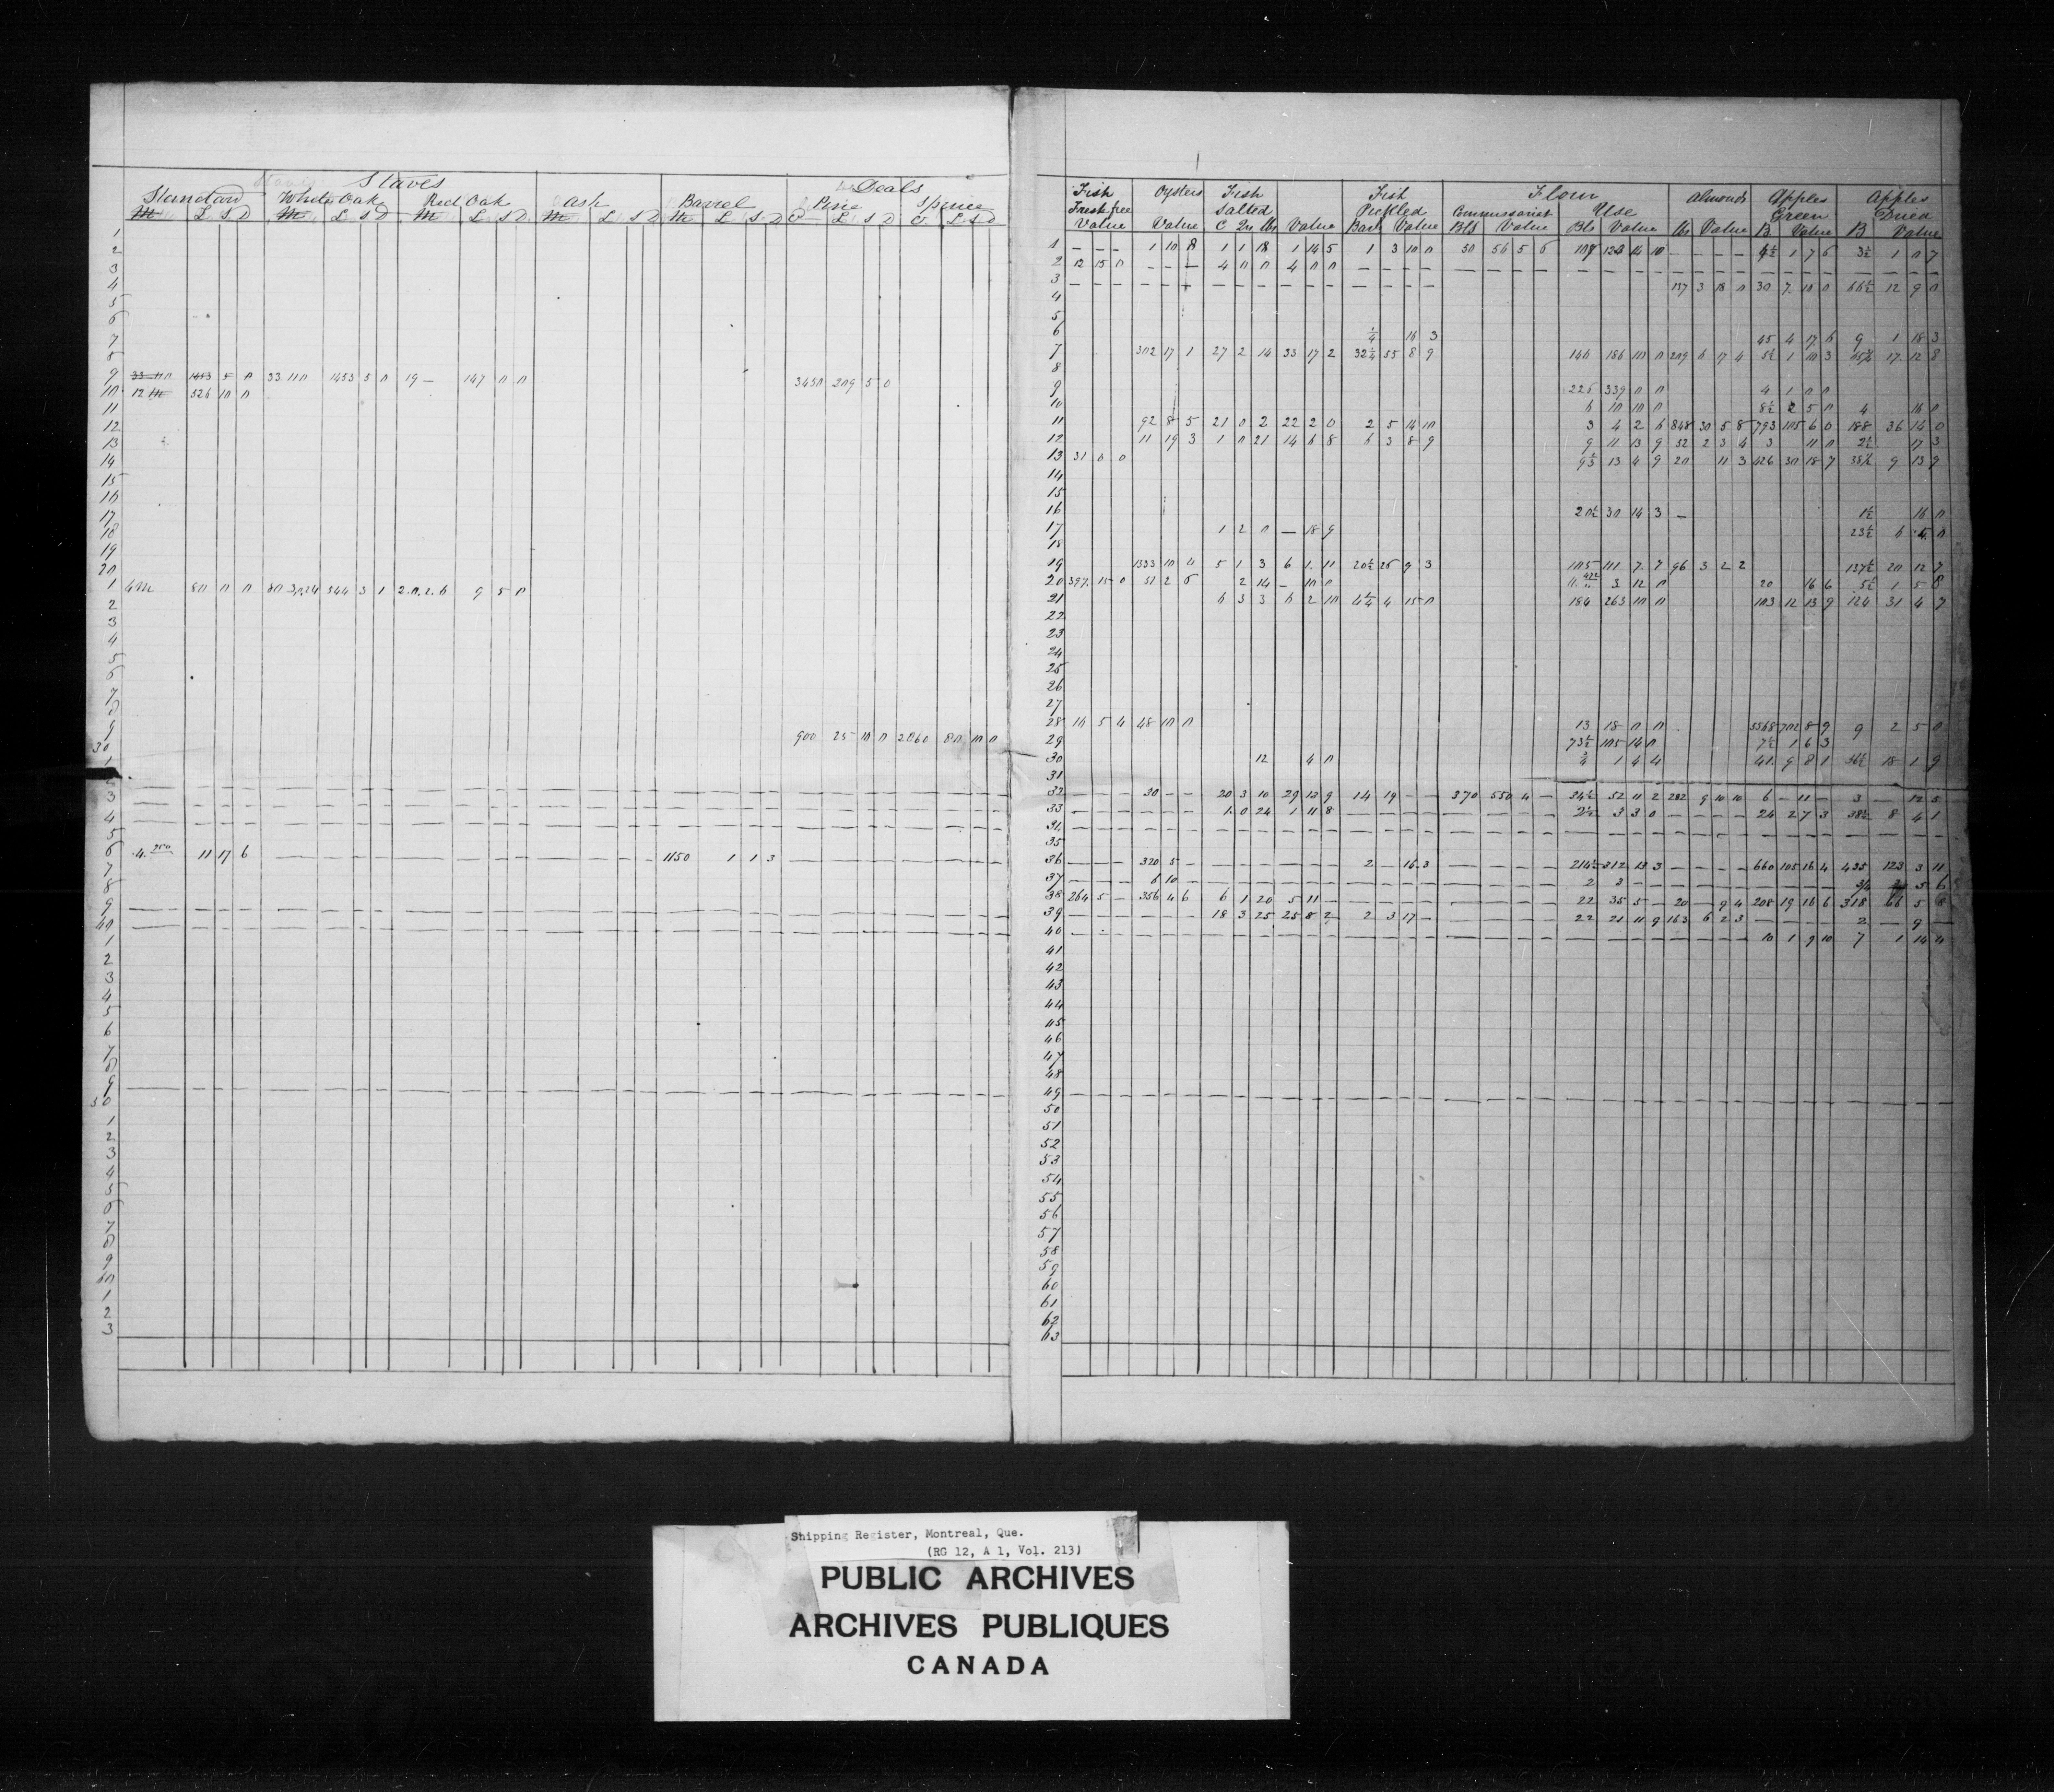 Staves
Deals
Standard White Oak Red Oak Ash Barrel Pine Spruce
M £ S D M £ S D M £ S D M £ S D M £ S D C £ S D C £ S D
1
2
3
4
5
6
7
8
9 33 110 1453 5 0 33 110 1453 5 0 19 — 147 0 0 3450 209 5 0
10 12 M 526 10 0
11
12
13
14
15
16
17
18
19
20
1 4M 80 0 0 80 3.0.24 544 3 1 2.0.2.6 9 5 0
2
3
4
5
6
7
8
9 900 25 10 0 2060 80 10 0
30
1
2
3
4
5
6 4.250 11 17 6 1150 1 1 3
7
8
9
40
1
2
3
4
5
6
7
8
9
50
1
2
3
4
5
6
7
8
9
60
1
2
3
Fish Oysters Fish Fish Flour Almonds Apples Apples
Fresh free Salted Pickled Commissariat Use Green Dried
Value Value C Qrs lbs Value Barl Value Bls Value Bls Value lbs Value B Value B Value
1 — — — 1 10 8 1 1 18 1 14 5 1 3 10 0 50 56 5 6 107 134 14 10 — — — — 4½ 1 7 6 3½ 1 0 7
2 12 15 0 — — — 4 0 0 4 0 0
3 137 3 18 0 30 7 10 0 66½ 12 9 0
4
5
6 ¼ 16 3 45 4 17 6 9 1 18 3
7 302 17 1 27 2 14 33 17 2 32¼ 55 8 9 140 186 10 0 209 6 17 4 5½ 1 10 3 65½ 17 12 8
8
9 226 339 0 0 4 1 0 0
10 6 10 10 0 8½ 2 5 0 4 16 0
11 92 8 5 21 0 2 22 2 0 2 5 14 0 3 4 2 6 848 30 5 8 793 105 6 0 188 36 14 0
12 11 19 3 1 0 21 14 6 8 6 3 8 9 9 11 13 9 52 2 3 4 3 11 0 2½ 17 3
13 31 6 0 9½ 13 4 9 20 11 3 426 30 18 7 38½ 9 13 9
14
15
16 20½ 30 14 3 — 1½ 16 0
17 1 2 0 — 18 9 23½ 6 4 0
18
19 1333 10 11 5 1 3 6 1 11 20½ 26 9 3 105 111 7 7 96 3 2 2 137½ 20 12 7
20 397 15 0 51 2 6 2 14 — 10 0 3 12 0 20 16 6 5½ 1 5 8
21 6 3 3 6 2 10 4¼ 4 15 0 184 263 10 0 103 12 13 9 124 31 4 7
22
23
24
25
26
27
28 16 5 4 48 10 0 13 18 0 0 5568 702 8 9 9 2 5 0
29 73½ 105 14 0 7½ 1 6 3
30 12 4 0 ¾ 1 4 4 41 9 8 1 56½ 18 1 9
31
32 — — — 30 — — 20 3 10 29 13 9 14 19 — — 370 550 4 — 34½ 52 11 2 282 9 10 10 6 — 11 — 3 — 12 5
33 1 0 24 1 11 8 2½ 3 3 0 — — — — 24 2 7 3 38½ 8 4 1
34
35
36 — — — 320 5 — 2 — 16 3 214½ 312 13 3 — — — — 660 105 16 4 435 123 3 11
37 — — — 6 10 — 2 3 — — 3/4 5 6
38 264 5 — 356 4 6 6 1 20 5 11 — 22 35 5 — 20 — 9 4 208 19 16 6 318 66 5 8
39 18 3 25 25 8 2 2 3 17 — 22 21 11 9 163 6 2 3 — — — — 2 — 9 —
40 10 1 9 10 7 1 14 4
41
42
43
44
45
46
47
48
49
50
51
52
53
54
55
56
57
58
59
60
61
62
63
Shipping Register, Montreal, Que.
(RG 12, A 1, Vol. 213)
PUBLIC ARCHIVES
ARCHIVES PUBLIQUES
CANADA